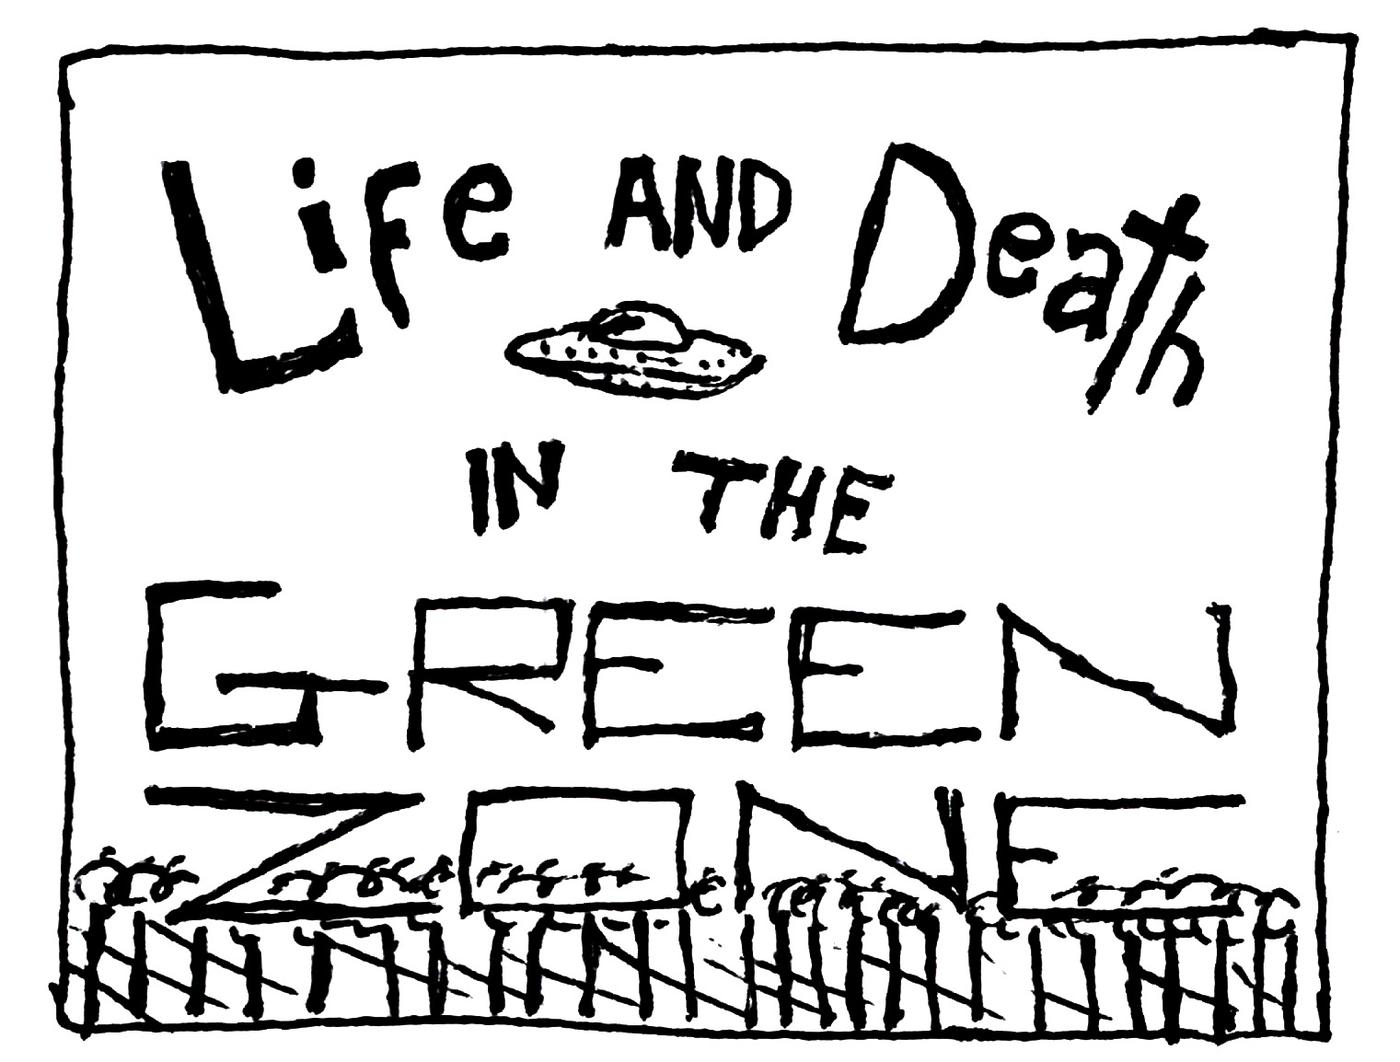 Life AND Death
IN THE
GREEN
ZONE